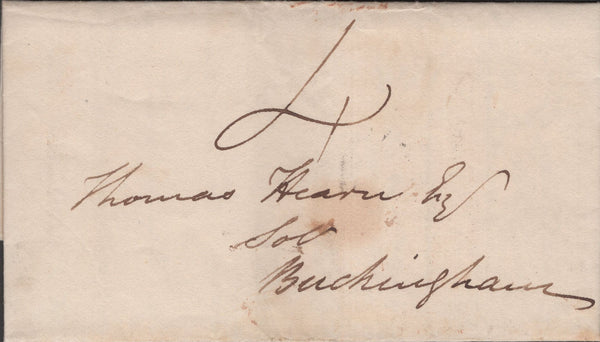 4
Thomas Hearn Esq
Solr
Buckingham